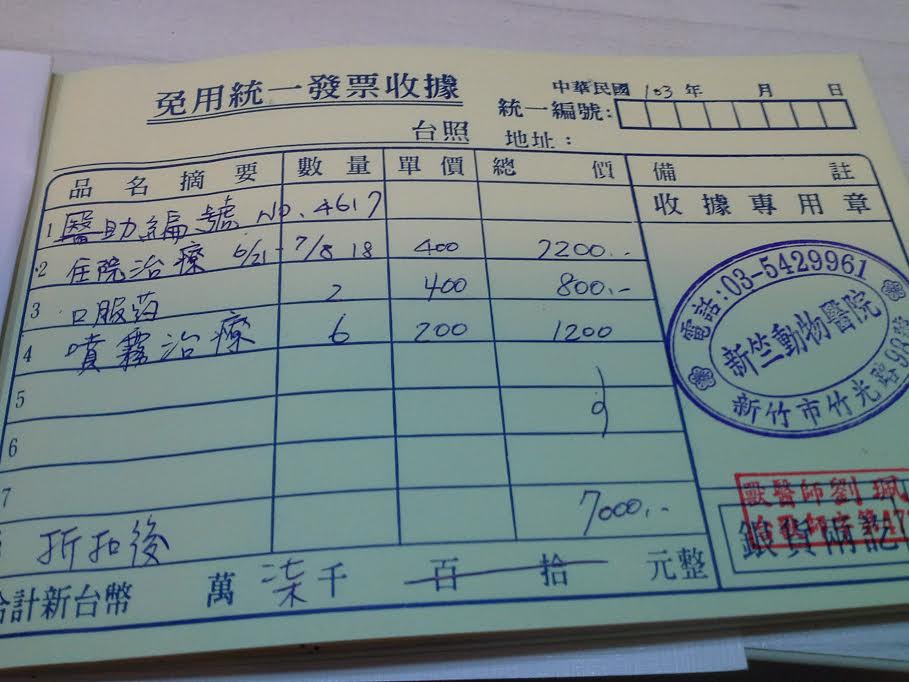 免用統一發票收據
中華民國 103 年 月 日
統一編號:
台照 地址:
品名摘要 數量 單價 總價 備註
1 醫助編號 NO. 4617
收據專用章
2 住院治療 6/21-7/8 18 400 7200.-
3 口服药 2 400 800.-
4 噴霧治療 6 200 1200
5
6
7
折扣後 7000.-
合計新台幣 萬 柒千 百 拾 元整
電話:03-5429961
新竺動物醫院
新竹市竹光路98號
獸醫師劉珮
銀貨兩訖